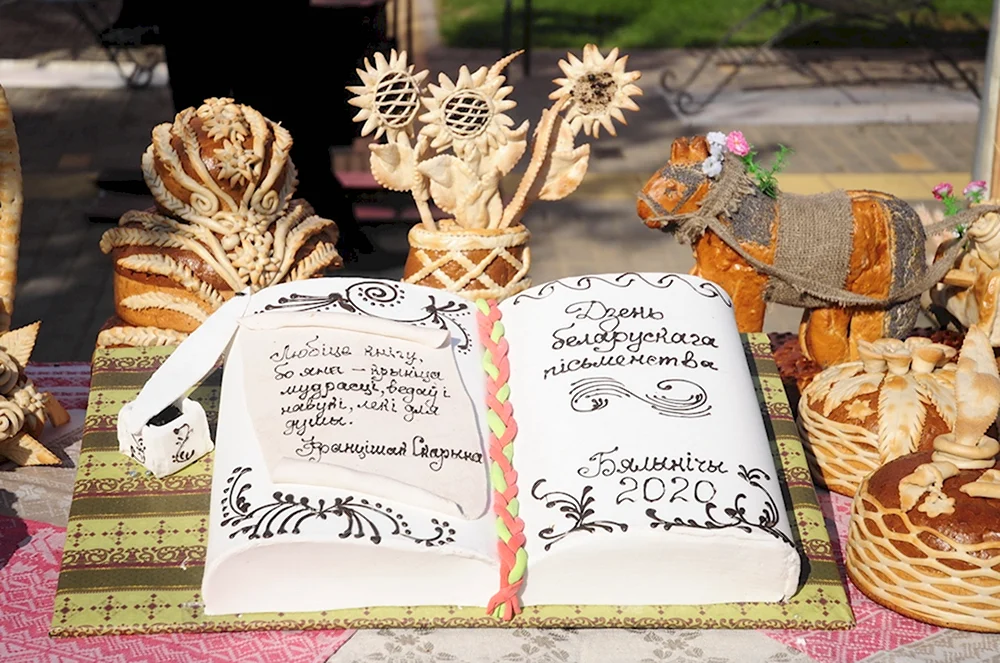 Любіце кнігу,
бо яна — крыніца
мудрасці, ведаў і
навукі, лекі для
душы.
Францішак Скарына
Дзень
беларускага
пісьменства
Бялынічы
2020